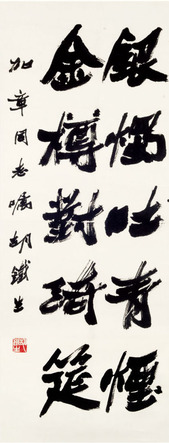 銀燭吐青煙
金樽對琦筵
加章同志囑 胡鐵生